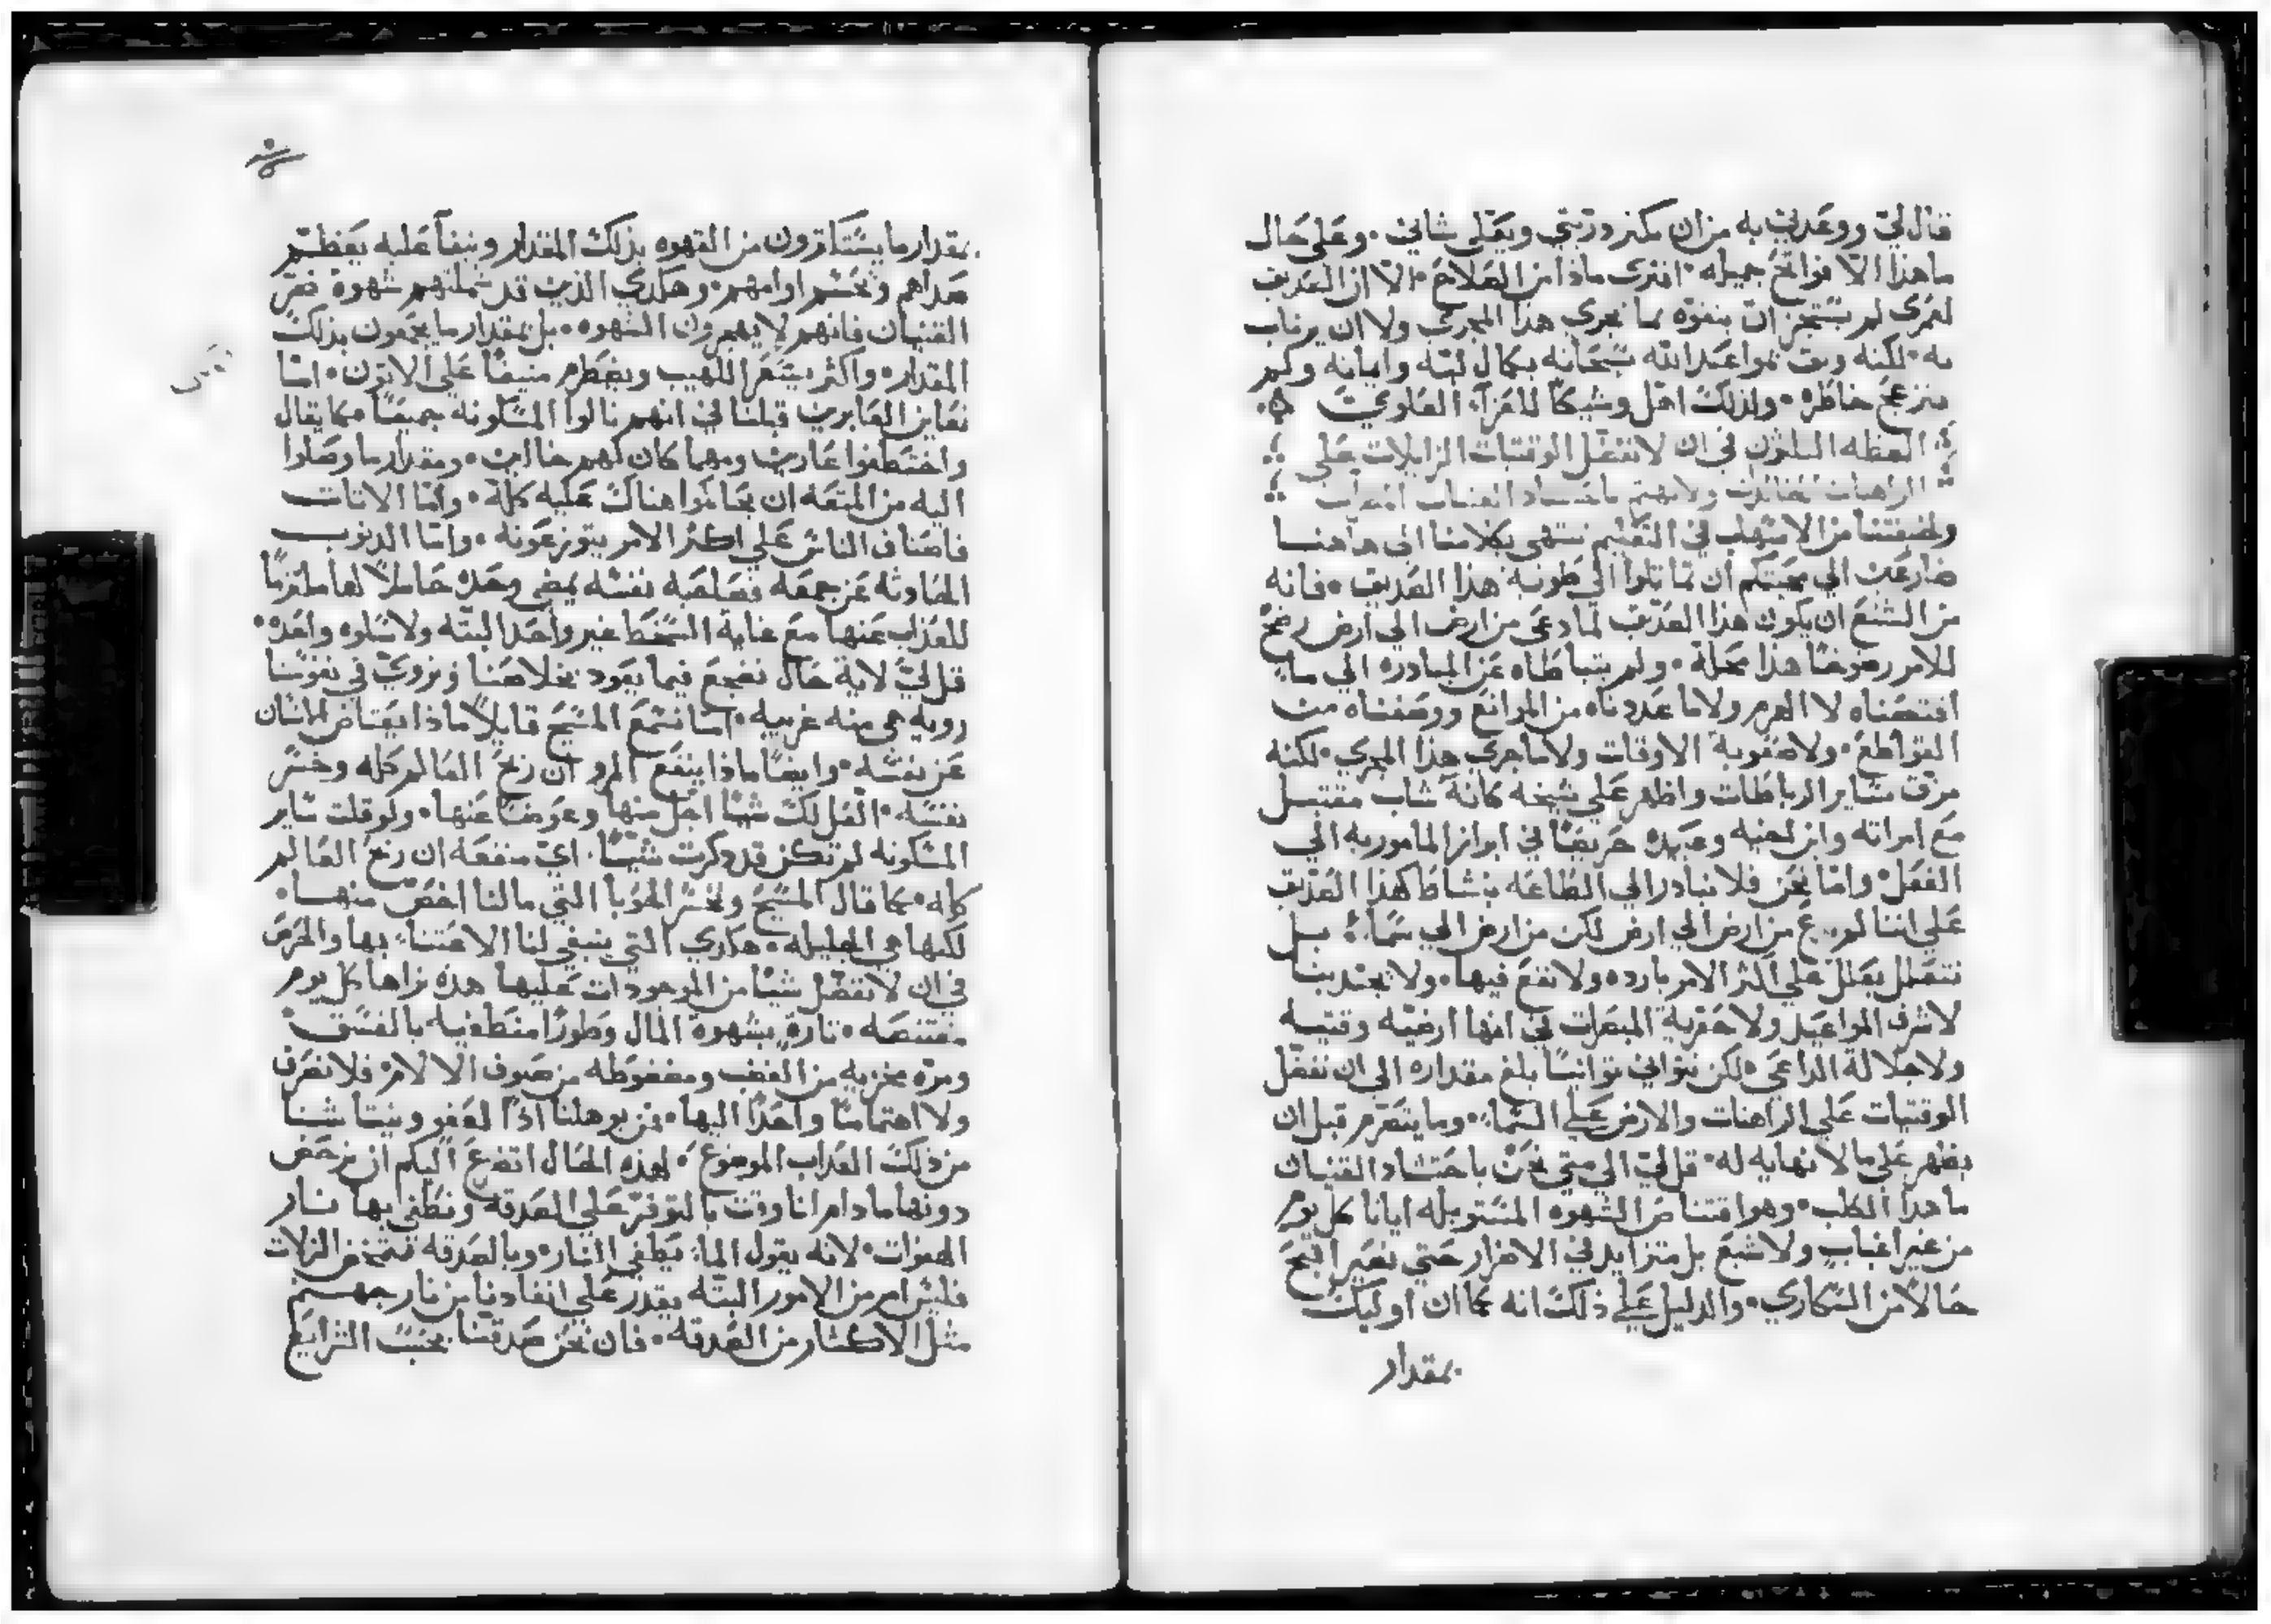 قال لي ووعدني به من ان مكنز درّبتي ويعّلي شاني • وعَلي حَال
ماهذا الّا فواتحَ جميله • افترى ماذا من الصَلاحَ • الّا ان الصَديق
لعمرى لم يَستَجز ان يتفوّه بما يجري هذا المجري ولا ان يرتاب
به • لكنه وثق بمواعَيد الله سُبحَانه بكمال لبّه وايمانه ولم
ينزعجَ خاطَره • ولذلك اهّل وشيكاً للعَزآء العَلوي
العظه الثلثون في ان لا نفضّل الوقتيات الزايلات على
الراهنات ولا نهتم باحتشاد القنيات
ولضيقتنا من الاسهاب في التعَليم ننتهى بكلامنا الي هاهنا
ضارعَين الي محبتكم ان تماثلوا الي طَوبية هذا الصَديق • فانه
من الشنعَ ان يكون هذا الصَدّيق لما دعَى من ارض الي ارض رضخَ
للامر رضوخاً هذا محَلّه • ولم يتباطَاه عَن المبادره الي ما
افتصَناه لا الهرم ولا ما عَددناه من الموانعَ ووصَفناه من
القواطعَ • ولا صَعَوبة الاوقات ولا ما جرى هذا المجري • لكنه
مزّق سَاير الرباطَات واظهر عَلي شيخه كانه شاب مقتبل
معَ امراته وابن اخيه وعَبيده حَريصَاً في ابراز المامور به الي
الفعَل • وامّا نحَن فلا نبادر الي الطَاعَه بنشاطَ كهذا الصَدّيق
عَلي اننا لم ندعَ من ارض الي ارض لكن من ارض الي سَماء بل
نتعَلل بعَلل عَلي اكثر الامر بارده ولا نفعَ فيها • ولا يجتذبنا
لا شرف المواعَيد ولا حَقريه المبصَرات في انها ارضيّه وقتيه
ولا جَلالة الداعَي • لكن نتواني توانيّاً بلغ مقداره الي ان نفضّل
الوقتيات عَلي الراهنات والارض عَلي السَماء • وما يتصَرّم قبل ان
يظهر عَلي ما لا نهايه له • قل لي الي متي نحَن باحَتشاد القنيان
ما هذا الكلب • وهو اقتناص الشهوه المستوبله ايانا كل يوم
من غير اغباب ولا شبعَ بل متزايد في الاضرار حَتي نصَير اقبحَ
حَالاً من السَكاري • والدليل عَلي ذلك انه كما ان اوليك
بمقدار
بمقدار ما يستكثرون من القهوه بذلك المقدار وينفاً عَليه يعَظم
صَداهم وتحَتدم اوامهم • وهكذي الذين قد شملتهم شهوة ضرّ
القنيان فانهم لا يهجرون الشهوه • بل بمقدار ما يجمعَون بذلك
المقدار واكثر يتسَعَر اللهيب ويضطَرم منيفاً عَلي الاتون • امّا
نعَاين العَابرين قبلنا في انهم نالوا المسَكونه جميعَاً • كما يقال
واختطَفوا عَارين ومهما كان لهم خالين • وبمقدار ما وصَلوا
اليه من المتعَه ان يحَاكموا هناك عَليه كلّه • وامّا الاثاث
فاصَناف الناس عَلي اكثر الامر يتوزعَونه • وامّا الذنوب
الحَادثه عَن جمعَه فصَاحَبه نفسَه يمضي وحَده حَاملاً لها ملتزماً
للعَذاب عَنها معَ غاية السَخط غير واجَد البتّه ولا سَلوه واحَده •
قل لي لاية حَال نضجعَ فيما يعَود بخلاصَنا ونروي في نفوسَنا
رويه هي منه غريبه • امَا نسَمعَ المسَيحَ قايلاً ماذا يعَتاض الانسَان
عَن نفسَه • وايضاً ماذا ينفعَ المرو ان ربحَ العَالم كله وخسَر
نفسَه • العَل لك شياً اجَل منها وعَوضاً عَنها • ولو قلت سَاير
المسَكونه لم تكن قد ذكرت شياً • اي منفعَه ان ربحَ العَالم
كله • كما قال المسَيحَ وتخسَر الحَوبا التي ما لنا اخصَ منها •
لكنها هي الجليله • هكذي التي ينبغي لنا الاعَتناء بها والحَرص
في ان لا نفضّل شياً من الموجودات عَليها هذه نراها كل يوم
مقتنصَه • تارة بشهوة المال وطَوراً منطَغيه بالفسَق
ومرّه مخزيه من الغضب ومضغوطَه من صَنوف الالام • فلا نصَرف
ولا اهتماماً واحَداً اليها • فمن يوهلنا اذاً لعَفو وينتاشنا
من ذلك العَذاب الموضوعَ • لهذه الحَال اتضرعَ اليكم ان نرحَض
دونها ما دام لنا وقت بالتوفر عَلي الصَدقه ونطَفي بها نار
الهفوات • لانه يقول الماء يطَفي النار • وبالصَدقه تمتحَض الزلات
فليس امر من الامور البتّه يقدر عَلي انقاذنا من نار جهنم
مثل الاكثار من الصَدقه • فان نحَن صَدقنا بحَسَب الشرايعَ